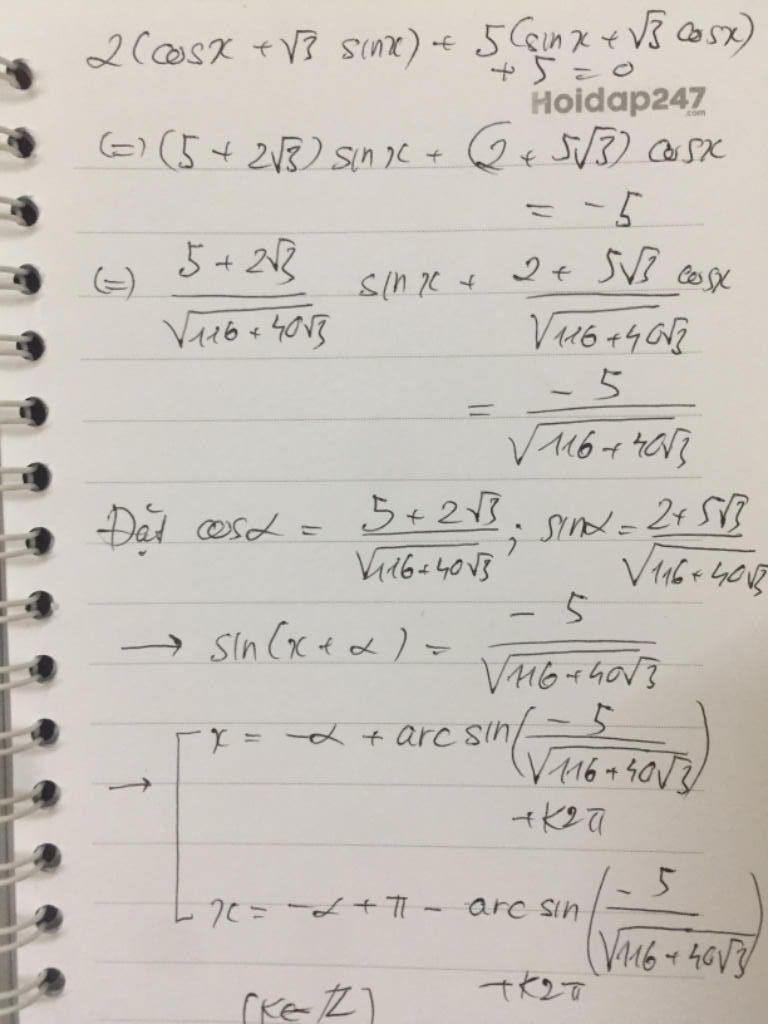 2(cosx + √3 sinx) + 5(sinx + √3 cosx)
+ 5 = 0
Hoidap247
.com
(=) (5 + 2√3) sinx + (2 + 5√3) cosx
= -5
(=) (5 + 2√3)/√(116 + 40√3) sinx + (2 + 5√3)/√(116 + 40√3) cosx
= -5/√(116 + 40√3)
Đặt cosα = (5 + 2√3)/√(116 + 40√3); sinα = (2 + 5√3)/√(116 + 40√3)
→ sin(x + α) = -5/√(116 + 40√3)
→ [ x = -α + arc sin(-5/√(116 + 40√3))
+ k2π
x = -α + π - arc sin(-5/√(116 + 40√3))
+ k2π
(k ∈ Z)